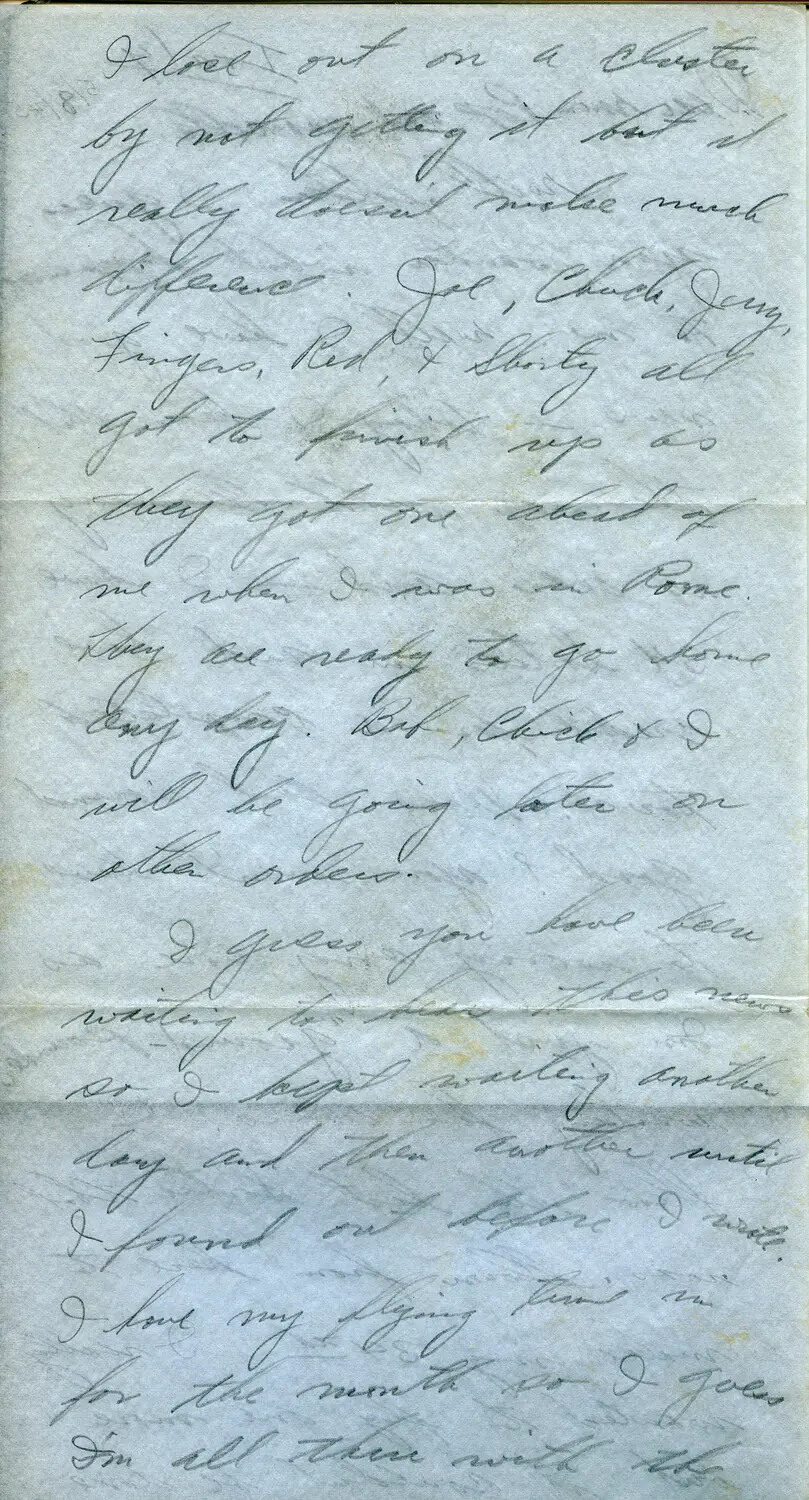 I lose out on a cluster
by not getting it but it
really doesn't make much
difference. Joe, Chuck, Jerry,
Fingers, Red, & Shorty all
got to finish up as
they got one ahead of
me when I was in Rome.
They are ready to go home
any day. Bob, Chick & I
will be going later on
other orders.
I guess you have been
waiting to hear this news
so I kept waiting another
day and then another until
I found out before I write.
I have my flying time in
for the month so I guess
I'm all thru with the